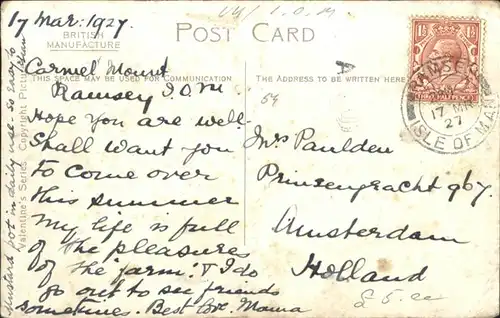 UK/I.O.M
17 Mar: 1927.
BRITISH
MANUFACTURE
POST CARD
Carmel Mount
THIS SPACE MAY BE USED FOR COMMUNICATION
Ramsey I.O.M
Hope you are well.
Shall want you
to come over
this summer
My life is full
of the pleasures
of the "farm". I do
go out to see friends
sometimes. Best love. Mama
Mustard pot in daily use - so easy to
Valentine's Series Copyright Picture
A
THE ADDRESS TO BE WRITTEN HERE
59
Mrs Paulden
Prinsengracht 967.
Amsterdam
Holland
£5.00
1½ 1½
RAMSEY
17 MR
27
ISLE OF MAN